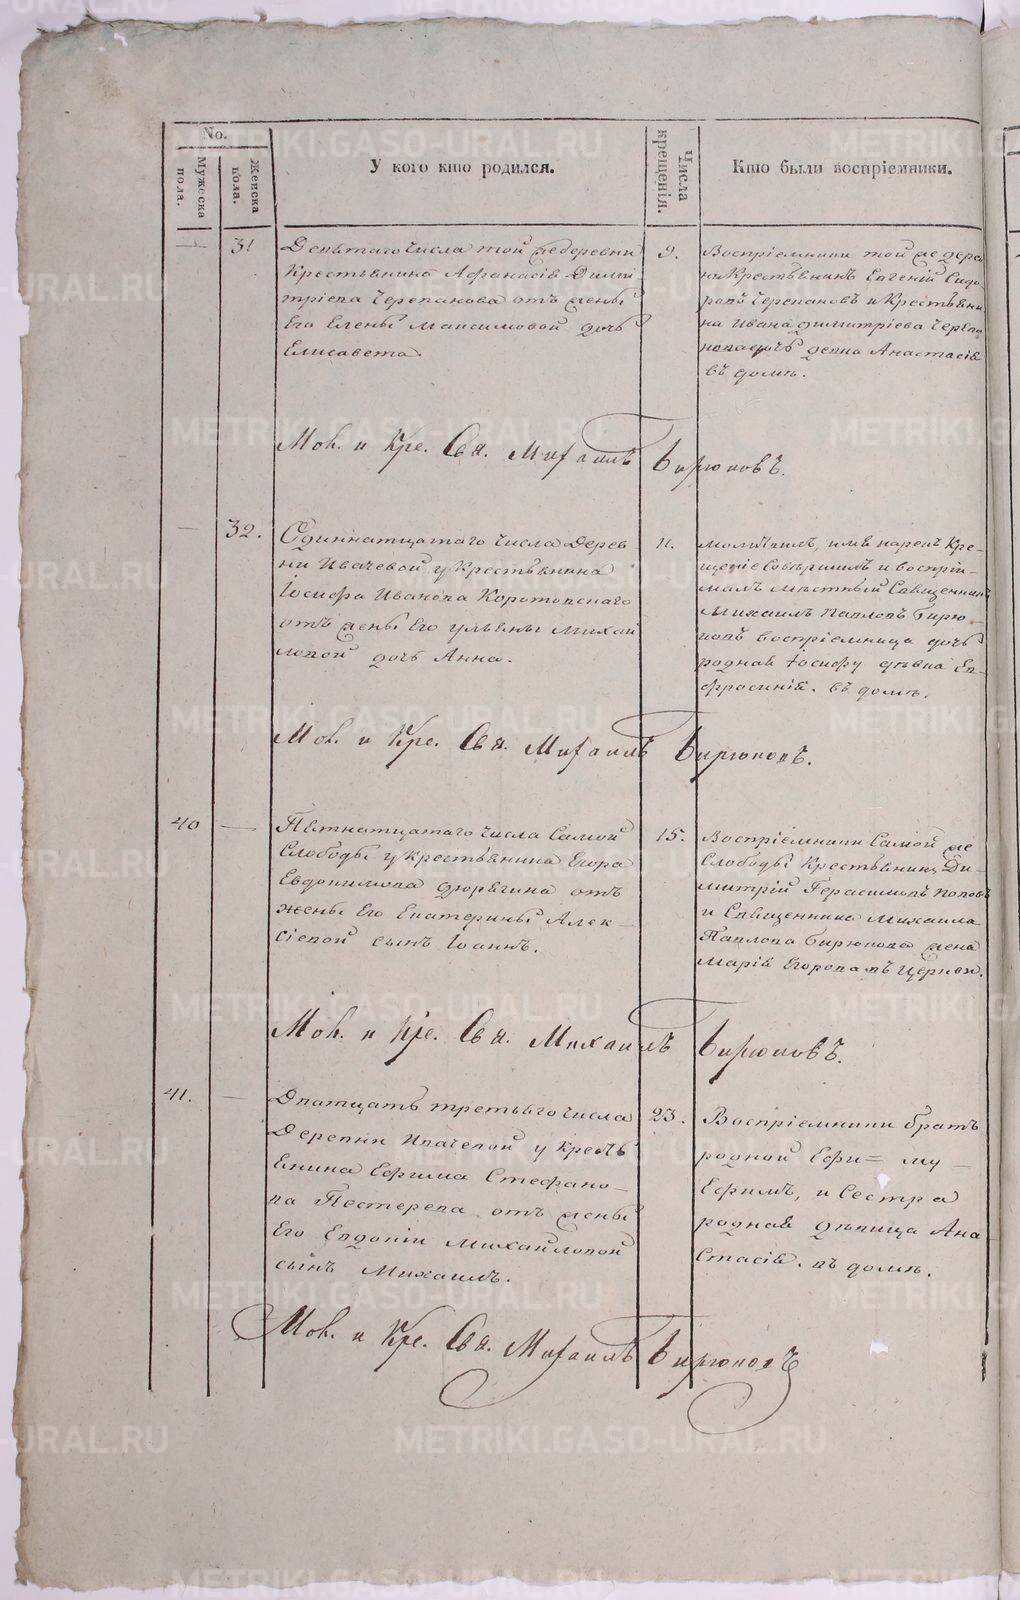 No.
Мужеска пола.
Женска пола.
У кого кто родился.
Числа крещенія.
Кто были воспріемники.
31
Девятаго числа той же деревни
Крестьянина Афанасія Дими
тріева Черепанова отъ жены
Его Елены Максимовой дочь
Елисавета.
9.
Воспріемники той же дерев
ни Крестьянинъ Евгеній Сидо
ровъ Черепановъ и Крестьяни
на Ивана Димитріева Черепа
нова дочь девка Анастасія
въ домѣ.
Мол. и Кре. Свя. Михаилъ Бирюковъ.
32.
Одиннатцатаго числа Дерев
ни Ивачевой у Крестьянина
Іосифа Иванова Коротовскаго
отъ жены Его Ульяны Михаи
ловой дочь Анна.
11.
молитвилъ, имя нарекъ Кре-
щеніе Совершилъ и воспрія-
малъ мѣстный Священникъ
Михаилъ Павловъ Бирю-
ковъ воспріемница дочь
родная Іосифу дѣвка Ев-
фросинія. въ домѣ.
Мол. и Кре. Свя. Михаилъ Бирюковъ.
40
Пятнатцатаго числа Самой
Слободы у крестьянина Егора
Евдокимова Дюрягина отъ
жены Его Екатерины Алек-
сіевой сынъ Іоаннъ.
15.
Воспріемники Самой же
Слободы Крестьянинъ Ди-
митрій Герасимовъ Поповъ
и Священника Михаила
Павлова Бирюкова жена
Марія Егорова въ Церкви.
Мол. и Кре. Свя. Михаилъ Бирюковъ.
41.
Дватцать третьяго числа
Деревни Ивачевой у Кресть
янина Ефима Стефано-
ва Пестерева отъ жены
Его Евдокіи Михайловой
сынъ Михаилъ.
23.
Воспріемники братъ
родной Ефи= му-
Ефимъ, и Сестра
родная дѣвица Ана
стасія. въ домѣ.
Мол. и Кре. Свя. Михаилъ Бирюковъ
METRIKI.GASO-URAL.RU